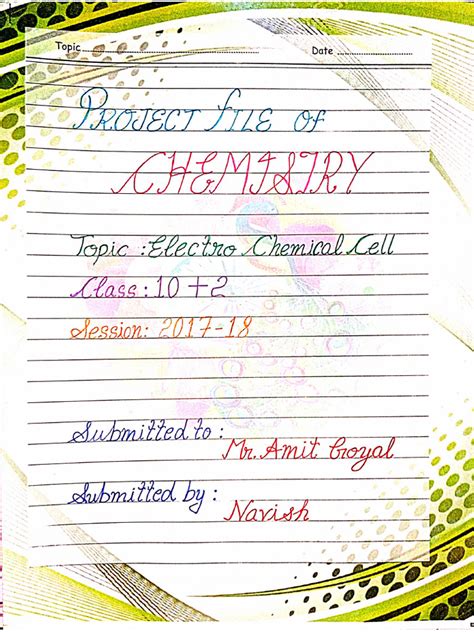 Topic Date
PROJECT FILE OF
CHEMISTRY
Topic : Electro Chemical Cell
Class : 10 + 2
Session: 2017-18
Submitted to :
Mr. Amit Goyal
Submitted by :
Navish